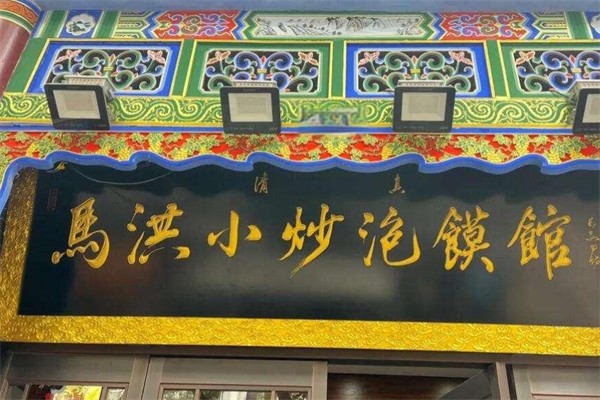 清真
馬洪小炒泡饃館